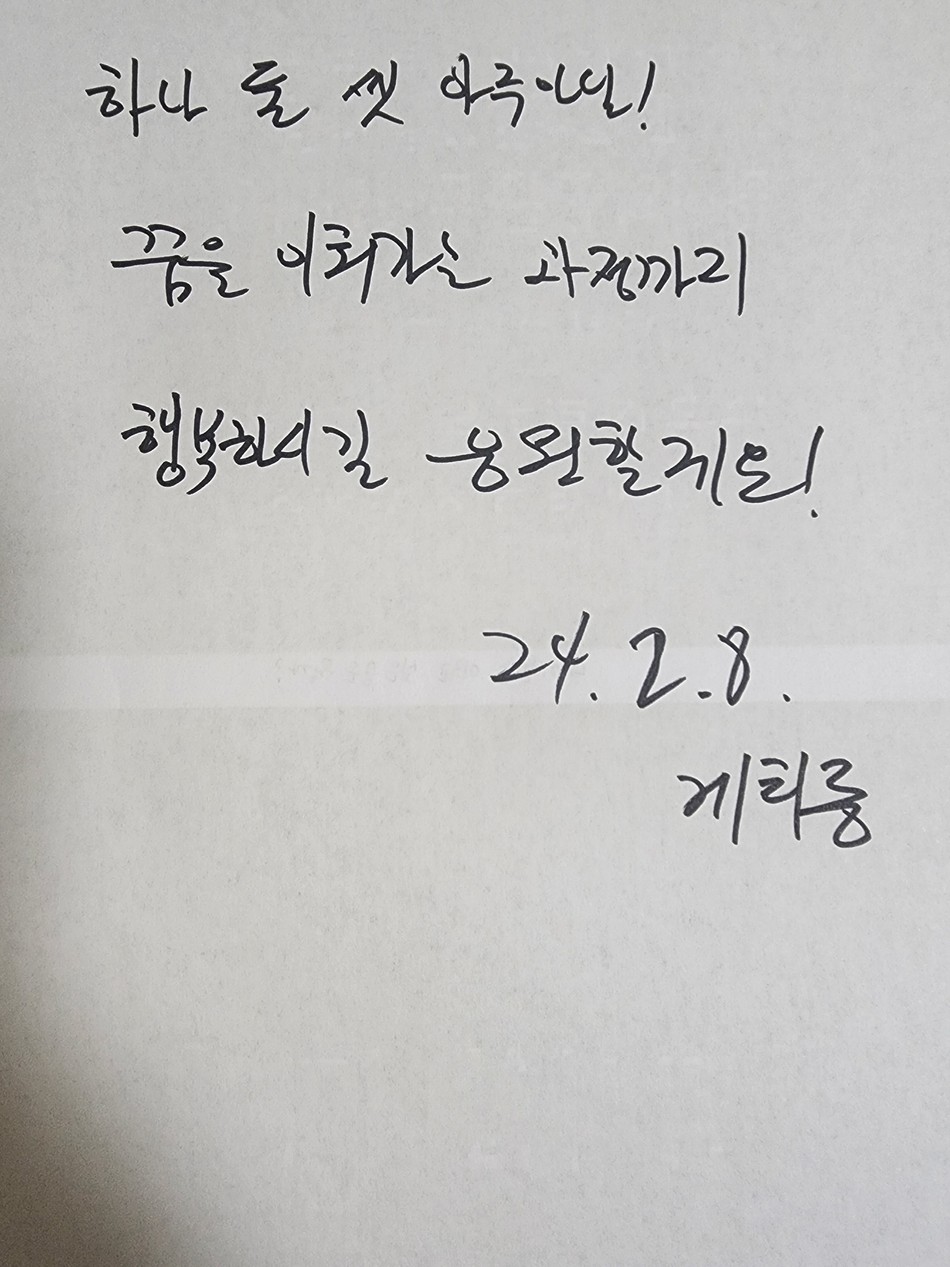 하나 둘 셋
꿈을 이뤄가는 과정까지
행복하시길 응원할게요!
24.2.8.